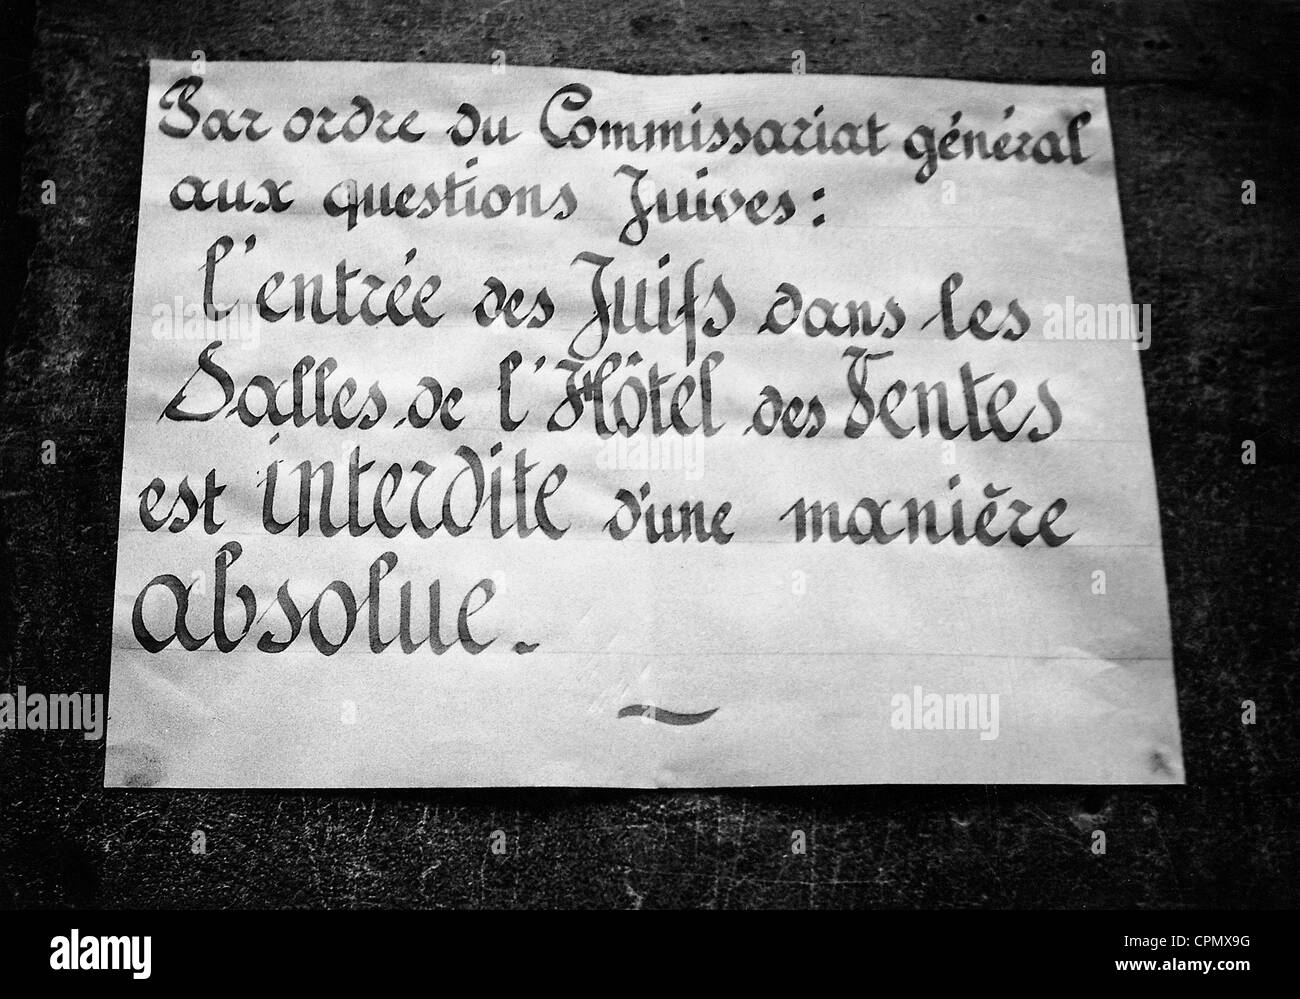 Par ordre du Commissariat général
aux questions Juives:
l'entrée des Juifs dans les
Salles de l'Hôtel des Ventes
est interdite d'une manière
absolue.
alamy
Image ID: CPMX9G
www.alamy.com